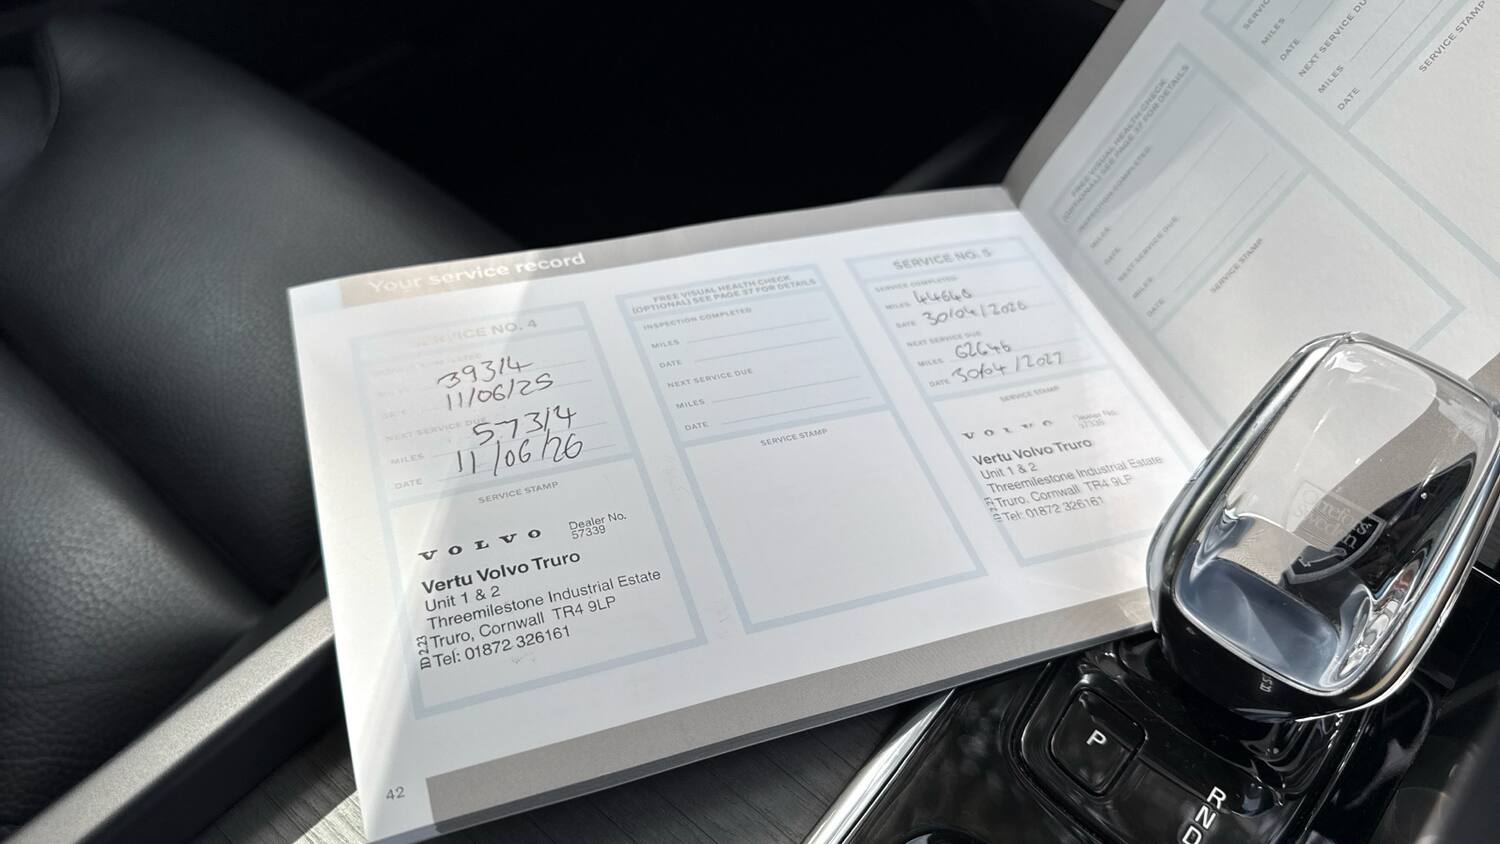 Your service record
SERVICE NO. 4
39314
11/06/25
NEXT SERVICE DUE
57314
MILES
11/06/26
DATE
SERVICE STAMP
VOLVO
Dealer No.
57339
Vertu Volvo Truro
Unit 1 & 2
Threemilestone Industrial Estate
Truro, Cornwall TR4 9LP
Tel: 01872 326161
42
FREE VISUAL HEALTH CHECK
(OPTIONAL) SEE PAGE 37 FOR DETAILS
INSPECTION COMPLETED
MILES
DATE
NEXT SERVICE DUE
MILES
DATE
SERVICE STAMP
SERVICE NO. 5
SERVICE COMPLETED
MILES 44646
DATE 30/04/2026
NEXT SERVICE DUE
MILES 62646
DATE 30/04/2027
SERVICE STAMP
VOLVO
Dealer No.
57339
Vertu Volvo Truro
Unit 1 & 2
Threemilestone Industrial Estate
Truro, Cornwall TR4 9LP
Tel: 01872 326161
FREE VISUAL HEALTH CHECK
(OPTIONAL) SEE PAGE 37 FOR DETAILS
INSPECTION COMPLETED
MILES
DATE
NEXT SERVICE DUE
MILES
DATE
SERVICE STAMP
MILES
DATE
NEXT SERVICE DUE
MILES
DATE
SERVICE STAMP
P
R
N
D